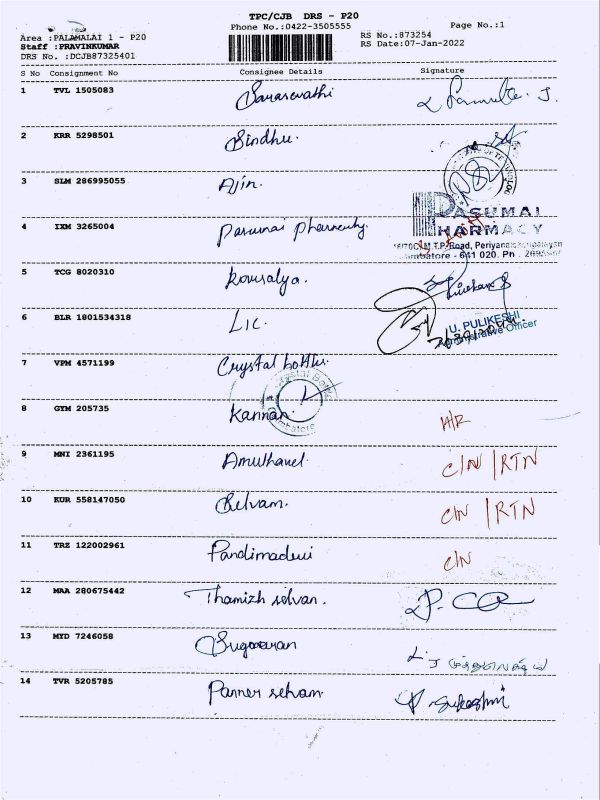 TPC/CJB DRS - P20
Phone No.:0422-3505555
Page No.:1
Area :PALAMALAI 1 - P20
Staff :PRAVINKUMAR
DRS No. :DCJB87325401
RS No.:873254
RS Date:07-Jan-2022
S No Consignment No Consignee Details Signature
1 TVL 1505083 Saraswathi
2 KRR 5298501 Sindhu.
3 SLM 286995055 Ajin.
PASUMAI
PHARMACY
4 IXM 3265004 Pasumai pharmacy.
M.T.P. Road, Periyanaickenpalayam
Coimbatore - 641 020. Ph
5 TCG 8020310 Kousalya.
6 BLR 1801534318 Lic.
U. PULIKESHI
Administrative Officer
7 VPM 4571199 Crystal bottles.
Crystal
Coimbatore
8 GYM 205735 Kannan. H/R
9 MNI 2361195 Amuthavel. C/N / RTN
10 KUR 558147050 Selvam. C/N / RTN
11 TRZ 122002961 Pandimadevi C/N
12 MAA 280675442 Thamizh selvan.
13 MYD 7246058
14 TVR 5205785 Panner selvam